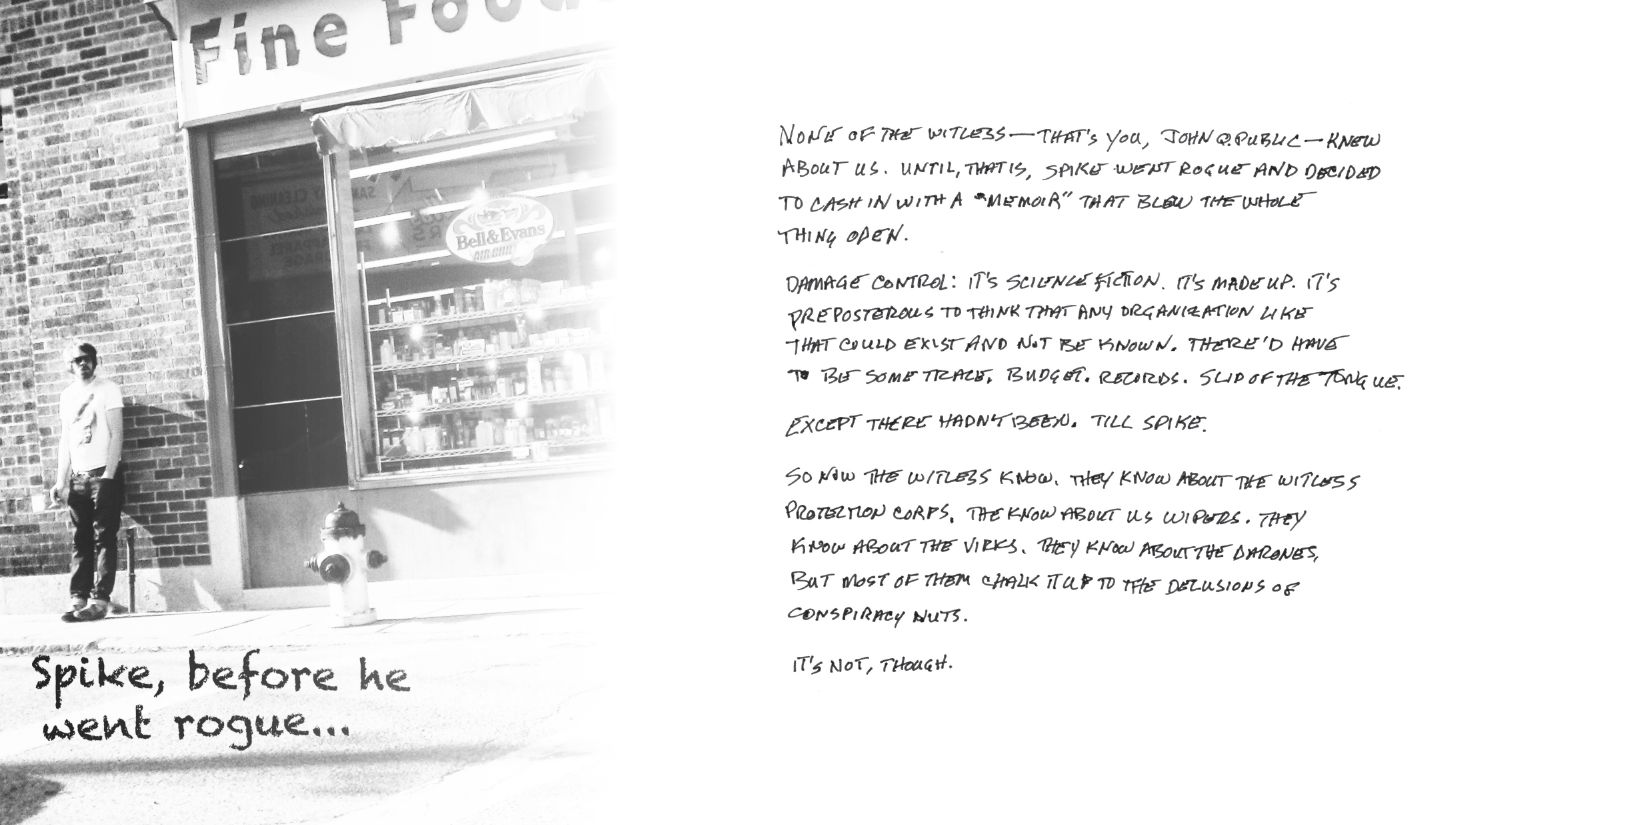 Fine Food
Bell & Evans
AIR CHILL
Spike, before he
went rogue...
NONE OF THE WITLESS—THAT'S YOU, JOHN Q. PUBLIC—KNEW
ABOUT US. UNTIL, THAT IS, SPIKE WENT ROGUE AND DECIDED
TO CASH IN WITH A "MEMOIR" THAT BLEW THE WHOLE
THING OPEN.
DAMAGE CONTROL: IT'S SCIENCE FICTION. IT'S MADE UP. IT'S
PREPOSTEROUS TO THINK THAT ANY ORGANIZATION LIKE
THAT COULD EXIST AND NOT BE KNOWN. THERE'D HAVE
TO BE SOME TRACE. BUDGET. RECORDS. SLIP OF THE TONGUE.
EXCEPT THERE HADN'T BEEN. TILL SPIKE.
SO NOW THE WITLESS KNOW. THEY KNOW ABOUT THE WITLESS
PROTECTION CORPS. THE KNOW ABOUT US WIPERS. THEY
KNOW ABOUT THE VIRKS. THEY KNOW ABOUT THE DARONES,
BUT MOST OF THEM CHALK IT UP TO THE DELUSIONS OF
CONSPIRACY NUTS.
IT'S NOT, THOUGH.